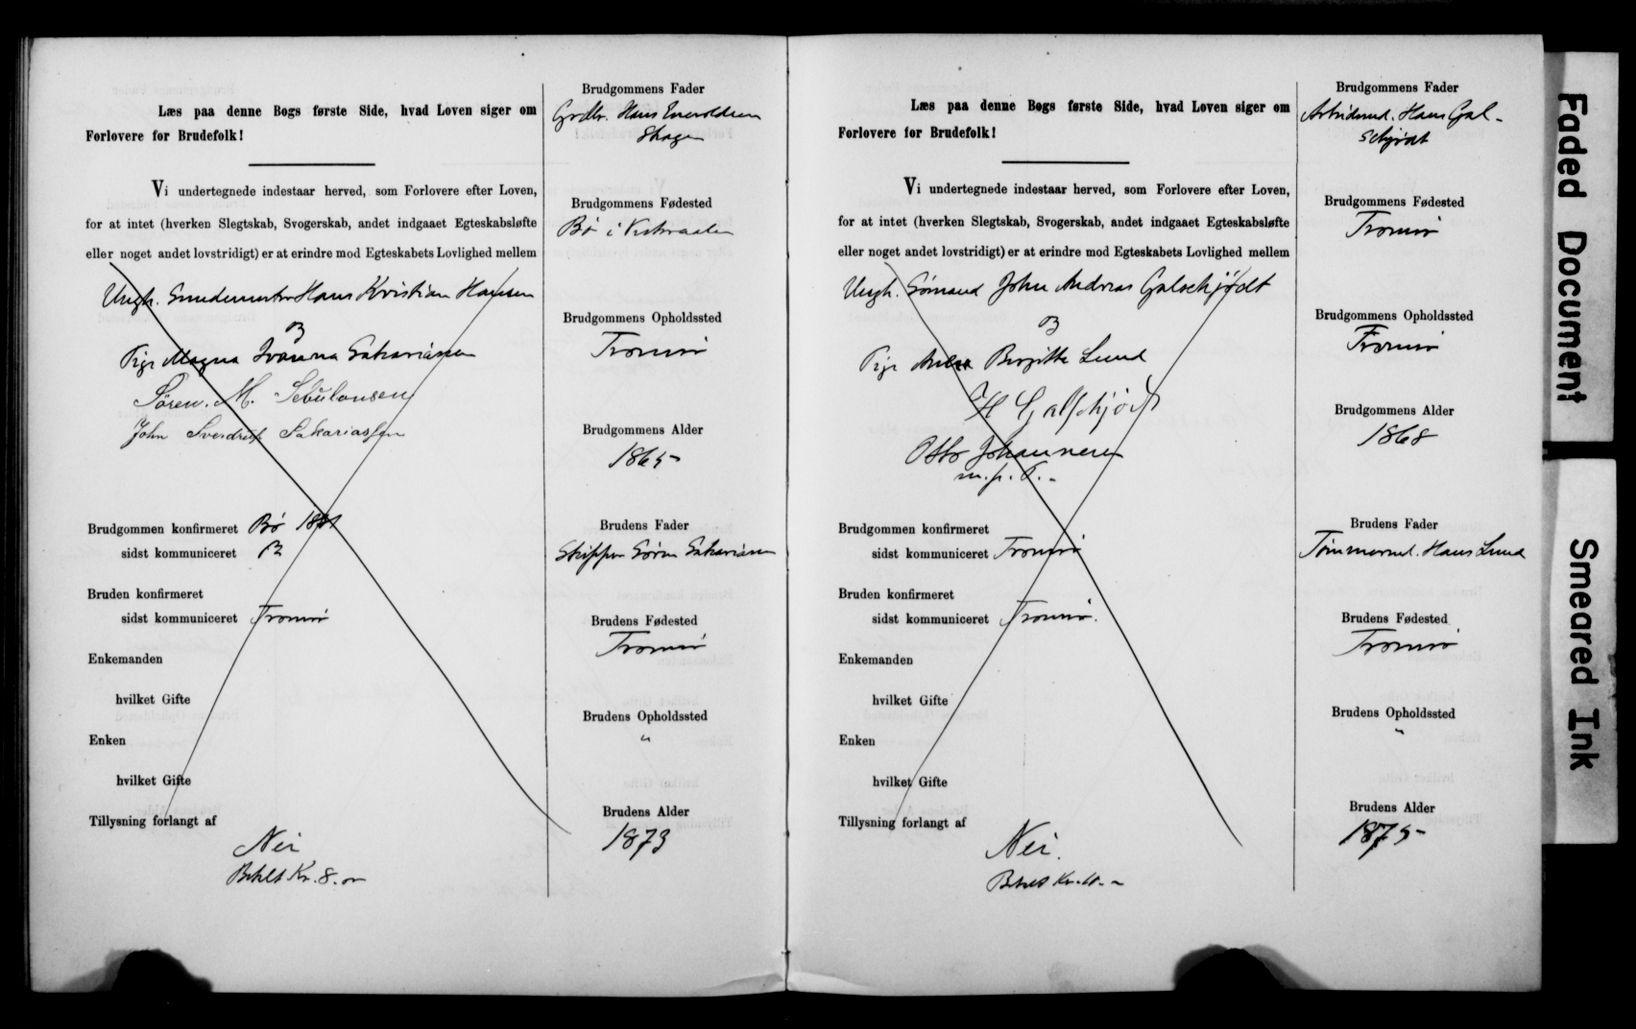 Læs paa denne Bogs første Side, hvad Loven siger om
Forlovere for Brudefolk!
Vi undertegnede indestaar herved, som Forlovere efter Loven,
for at intet (hverken Slegtskab, Svogerskab, andet indgaaet Egteskabsløfte
eller noget andet lovstridigt) er at erindre mod Egteskabets Lovlighed mellem
Ungk. Hans Kristian Hansen
Pige Magna Sakariasen
Søren. M. Sebulonsen
John Sverdrup Sakariassen
Brudgommen konfirmeret Bø
sidst kommuniceret
Bruden konfirmeret
sidst kommuniceret Tromsø
Enkemanden
hvilket Gifte
Enken
hvilket Gifte
Tillysning forlangt af
Nei
Betalt Kr. 8.
Brudgommens Fader
Hans
Brudgommens Fødested
Bø i Vesteraalen
Brudgommens Opholdssted
Tromsø
Brudgommens Alder
1865
Brudens Fader
Skipper Søren Sakariasen
Brudens Fødested
Tromsø
Brudens Opholdssted
"
Brudens Alder
1873
Læs paa denne Bogs første Side, hvad Loven siger om
Forlovere for Brudefolk!
Vi undertegnede indestaar herved, som Forlovere efter Loven,
for at intet (hverken Slegtskab, Svogerskab, andet indgaaet Egteskabsløfte
eller noget andet lovstridigt) er at erindre mod Egteskabets Lovlighed mellem
Ungk. Sømand John Andreas Galschjødt
Pige Birgitte Lund
H Galschjødt
Otto Johannesen
m. p. P.
Brudgommen konfirmeret
sidst kommuniceret Tromsø
Bruden konfirmeret
sidst kommuniceret Tromsø.
Enkemanden
hvilket Gifte
Enken
hvilket Gifte
Tillysning forlangt af
Nei.
Betalt Kr.
Brudgommens Fader
Arbeidsmd. Hans Gal-
schjødt
Brudgommens Fødested
Tromsø
Brudgommens Opholdssted
Tromsø
Brudgommens Alder
1868
Brudens Fader
Tømmermd. Hans Lund
Brudens Fødested
Tromsø
Brudens Opholdssted
"
Brudens Alder
1875
Faded Document
Smeared Ink